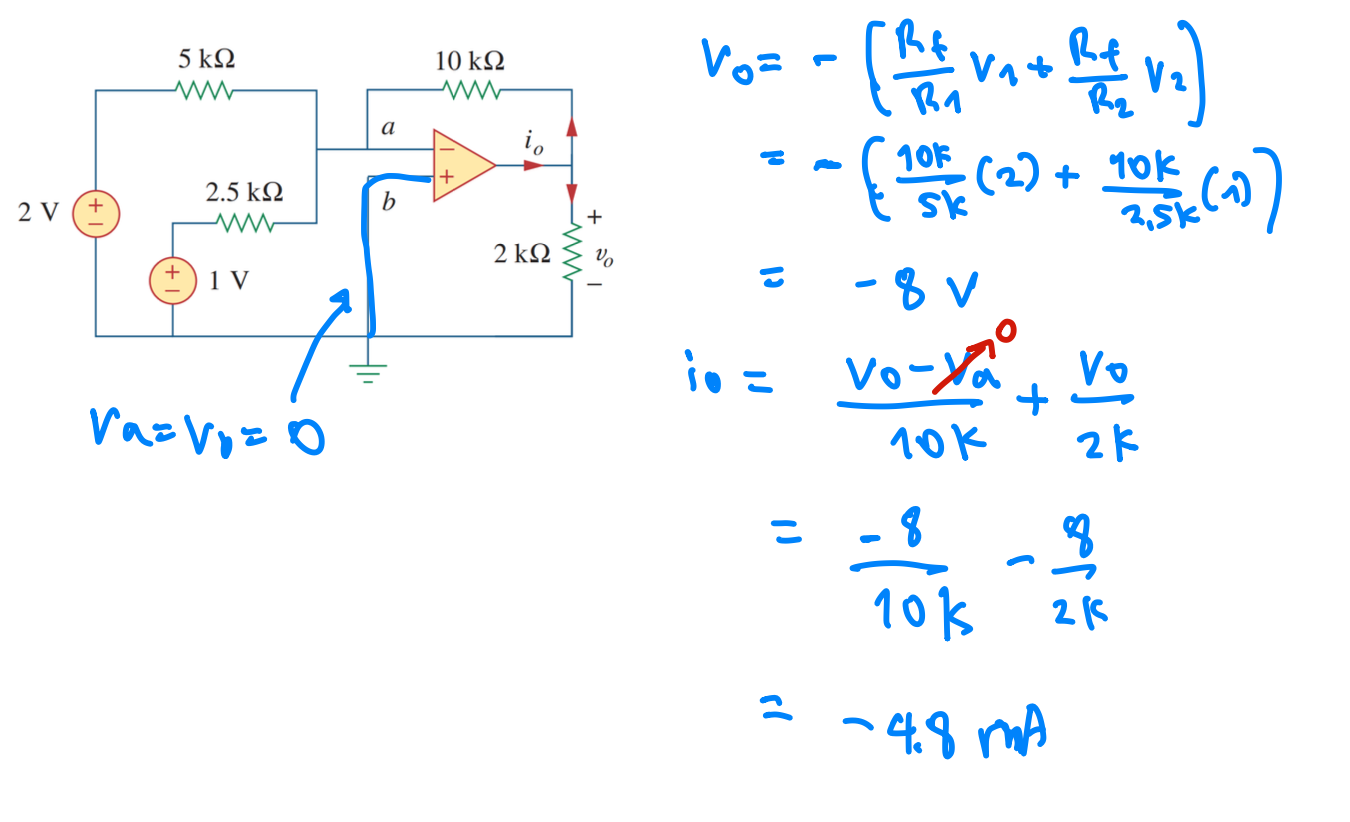 5 kΩ
10 kΩ
a
−
i_o
+
b
2.5 kΩ
2 V
+
−
+
−
1 V
2 kΩ
+
v_o
−
Va = Vb = 0
Vo = - [ Rf/R1 V1 + Rf/R2 V2 ]
= - ( 10k/5k (2) + 10k/2,5k (1) )
= - 8 V
0
io = Vo - Va/10k + Vo/2k
= -8/10k - 8/2k
= -4.8 mA